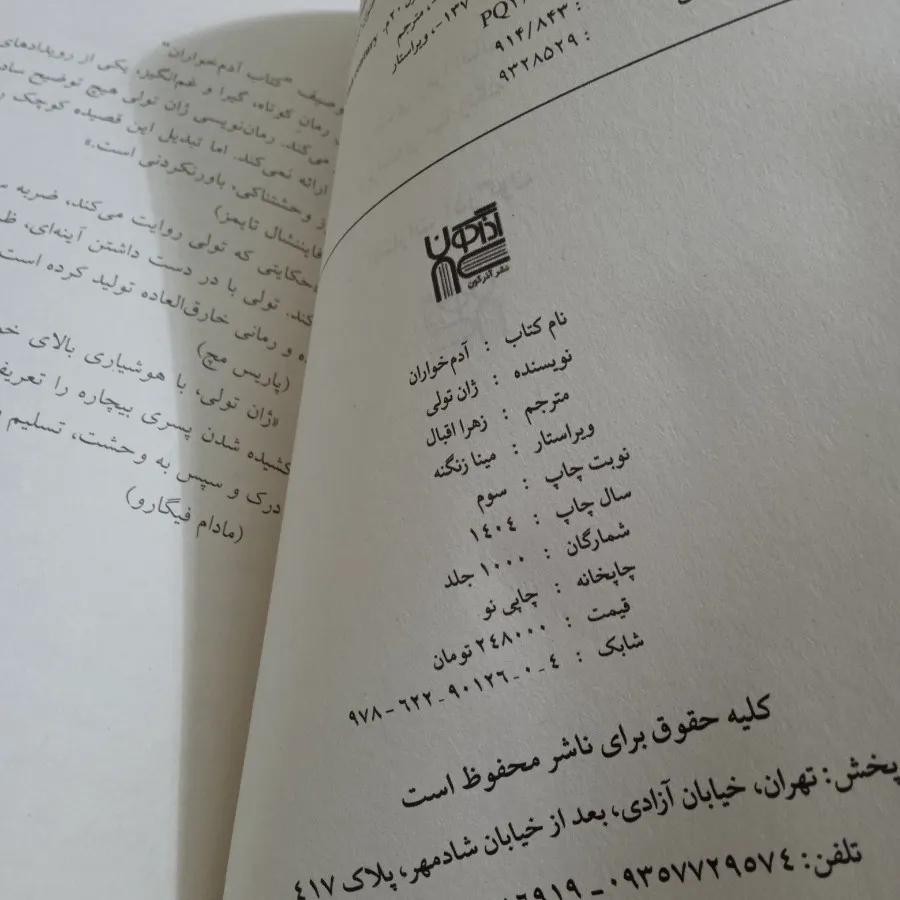 ، مترجم
-۱۳۷، ویراستار
PQ
۹۱۴/۸۴۳ :
۹۳۲۸۵۲۹ :
آذرگون
نشر آذرگون
نام کتاب : آدم‌خواران
نویسنده : ژان تولی
مترجم : زهرا اقبال
ویراستار : مینا زنگنه
نوبت چاپ : سوم
سال چاپ : ۱۴۰۴
شمارگان : ۱۰۰۰ جلد
چاپخانه : چاپی نو
قیمت : ۲۴۸۰۰۰ تومان
شابک : ۴_۰_۹۰۱۲۶_۶۲۲_۹۷۸
کلیه حقوق برای ناشر محفوظ است
پخش: تهران، خیابان آزادی، بعد از خیابان شادمهر، پلاک ۴۱۷
تلفن: ۰۹۳۵۷۷۲۹۵۷۴_ ۶۹۱۹
وصیف “کتاب آدم‌خواران”
رمان کوتاه، گیرا و غم‌انگیز، یکی از رویدادهای
می‌کند. رمان‌نویسی ژان تولی هیچ توضیح
ارائه نمی‌کند. اما تبدیل این قصیده کوچک
از وحشتناکی، باورنکردنی است.»
فایننشال تایمز)
حکایتی که تولی روایت می‌کند، ضربه
کند. تولی با در دست داشتن آینه‌ای،
ه و رمانی خارق‌العاده تولید کرده است
(پاریس مچ)
«ژان تولی، با هوشیاری بالای
کشیده شدن پسری بیچاره را
درک و سپس به وحشت، تسلیم
(مادام فیگارو)